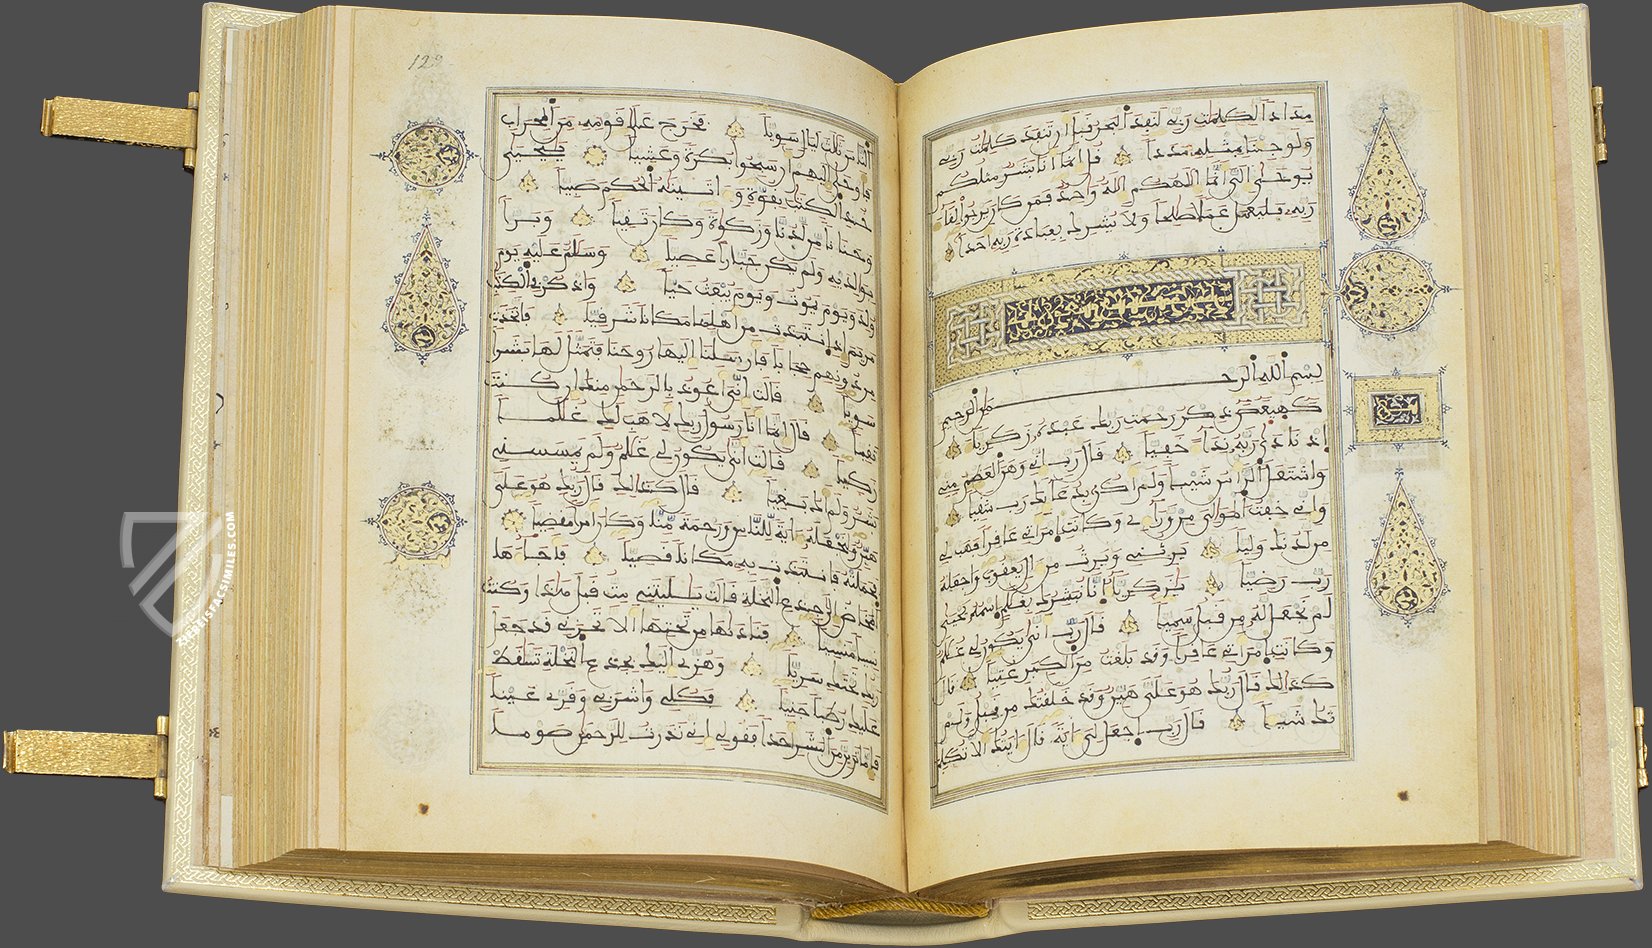 مدادا لكلمت ربي لنفد البحر قبل ان تنفد كلمت ربي
ولو جئنا بمثله مددا قل انما انا بشر مثلكم
يوحى الي انما الهكم اله واحد فمن كان يرجوا لقاء
ربه فليعمل عملا صلحا ولا يشرك بعبادة ربه احدا
بسم الله الرحمن الرحيم
كهيعص ذكر رحمت ربك عبده زكرياء
اذ نادى ربه نداء خفيا قال رب اني وهن العظم مني
واشتعل الراس شيبا ولم اكن بدعائك رب شقيا
واني خفت الموالي من وراءي وكانت امراتي عاقرا فهب لي
من لدنك وليا يرثني ويرث من ال يعقوب واجعله
رب رضيا يزكرياء انا نبشرك بغلم اسمه يحيى
لم نجعل له من قبل سميا قال رب انى يكون لي غلم
وكانت امراتي عاقرا وقد بلغت من الكبر عتيا قال
كذلك قال ربك هو علي هين وقد خلقتك من قبل ولم
تك شيا قال رب اجعل لي اية قال ايتك الا تكلم
122
الناس ثلث ليال سويا فخرج على قومه من المحراب
فاوحى اليهم ان سبحوا بكرة وعشيا ييحيى
خذ الكتب بقوة واتينه الحكم صبيا
وحنانا من لدنا وزكوة وكان تقيا وبرا
بوالديه ولم يكن جبارا عصيا وسلم عليه يوم
ولد ويوم يموت ويوم يبعث حيا واذكر في الكتب
مريم اذ انتبذت من اهلها مكانا شرقيا فاتخذت
من دونهم حجابا فارسلنا اليها روحنا فتمثل لها بشرا
سويا قالت اني اعوذ بالرحمن منك ان كنت
تقيا قال انما انا رسول ربك لاهب لك غلما
زكيا قالت انى يكون لي غلم ولم يمسسني
بشر ولم اك بغيا قال كذلك قال ربك هو علي
هين ولنجعله اية للناس ورحمة منا وكان امرا مقضيا
فحملته فانتبذت به مكانا قصيا فاجاءها
المخاض الى جذع النخلة قالت يليتني مت قبل هذا وكنت
نسيا منسيا فناديها من تحتها الا تحزني قد جعل
ربك تحتك سريا وهزي اليك بجذع النخلة تسقط
عليك رطبا جنيا فكلي واشربي وقري عينا
فاما ترين من البشر احدا فقولي اني نذرت للرحمن صوما